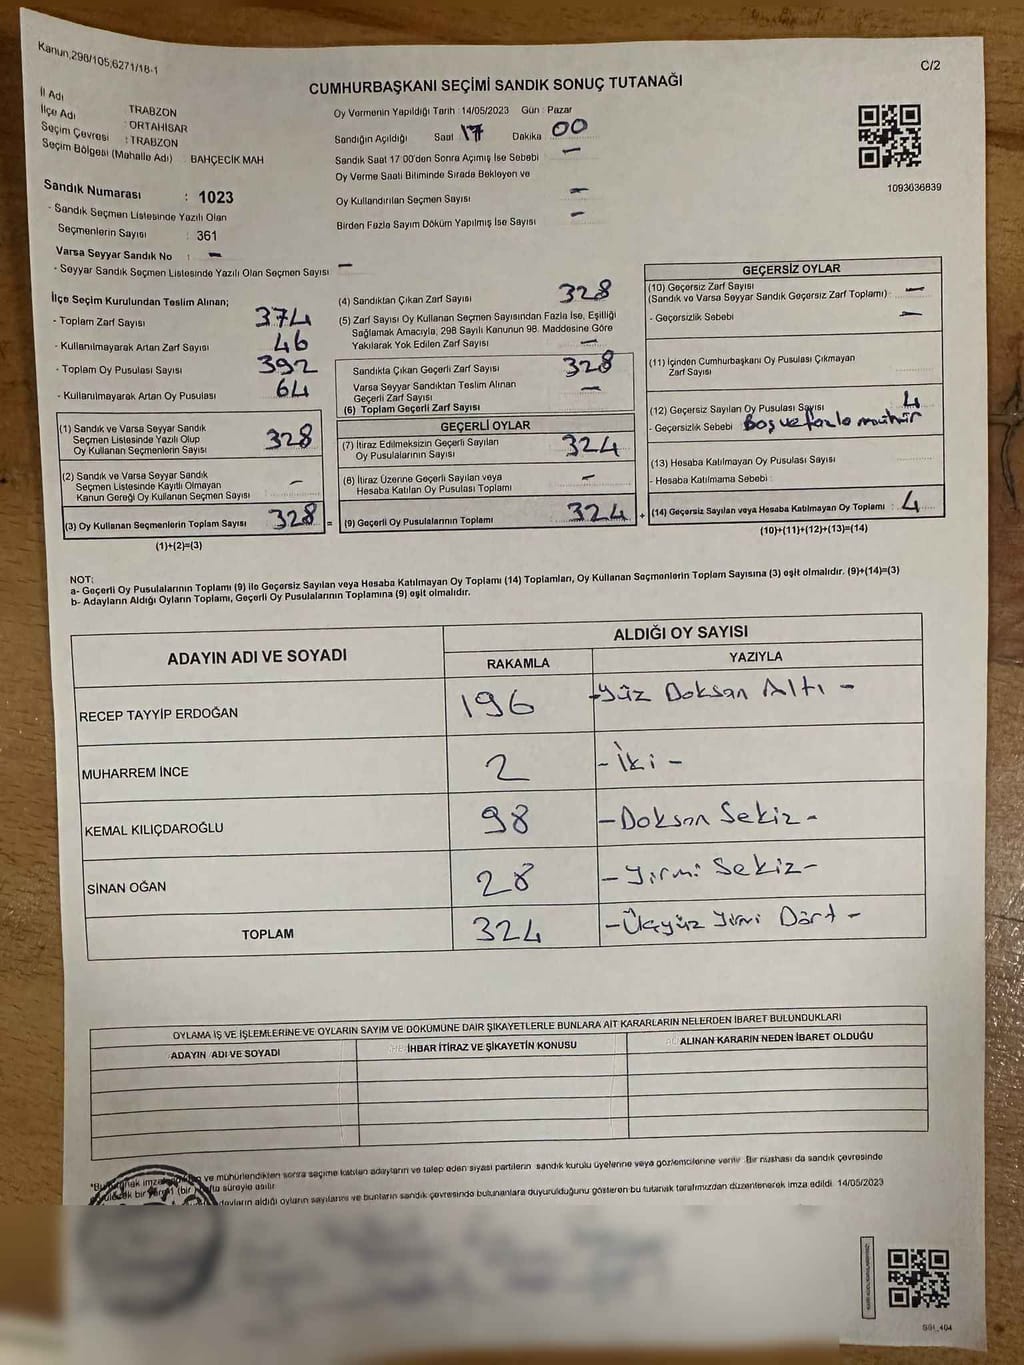 Kanun,298/105,6271/18-1
C/2
CUMHURBAŞKANI SEÇİMİ SANDIK SONUÇ TUTANAĞI
İl Adı TRABZON
İlçe Adı : ORTAHİSAR
Seçim Çevresi : TRABZON
Seçim Bölgesi (Mahalle Adı) BAHÇECİK MAH
Sandık Numarası : 1023
- Sandık Seçmen Listesinde Yazılı Olan
Seçmenlerin Sayısı : 361
Varsa Seyyar Sandık No : -
- Seyyar Sandık Seçmen Listesinde Yazılı Olan Seçmen Sayısı -
Oy Vermenin Yapıldığı Tarih : 14/05/2023 Gün : Pazar
Sandığın Açıldığı Saat 17 Dakika 00
Sandık Saat 17 00'den Sonra Açımış İse Sebebi -
Oy Verme Saati Bitiminde Sırada Bekleyen ve
Oy Kullandırılan Seçmen Sayısı -
Birden Fazla Sayım Döküm Yapılmış İse Sayısı -
1093636839
İlçe Seçim Kurulundan Teslim Alınan;
- Toplam Zarf Sayısı 374
- Kullanılmayarak Artan Zarf Sayısı 46
- Toplam Oy Pusulası Sayısı 392
- Kullanılmayarak Artan Oy Pusulası 64
(1) Sandık ve Varsa Seyyar Sandık
Seçmen Listesinde Yazılı Olup
Oy Kullanan Seçmenlerin Sayısı 328
(2) Sandık ve Varsa Seyyar Sandık
Seçmen Listesinde Kayıtlı Olmayan
Kanun Gereği Oy Kullanan Seçmen Sayısı -
(3) Oy Kullanan Seçmenlerin Toplam Sayısı 328 =
(1)+(2)=(3)
(4) Sandıktan Çıkan Zarf Sayısı 328
(5) Zarf Sayısı Oy Kullanan Seçmen Sayısından Fazla İse, Eşitliği
Sağlamak Amacıyla, 298 Sayılı Kanunun 98. Maddesine Göre
Yakılarak Yok Edilen Zarf Sayısı -
Sandıkta Çıkan Geçerli Zarf Sayısı 328
Varsa Seyyar Sandıktan Teslim Alınan
Geçerli Zarf Sayısı -
(6) Toplam Geçerli Zarf Sayısı
GEÇERLİ OYLAR
(7) İtiraz Edilmeksizin Geçerli Sayılan
Oy Pusulalarının Sayısı 324
(8) İtiraz Üzerine Geçerli Sayılan veya
Hesaba Katılan Oy Pusulası Toplamı -
(9) Geçerli Oy Pusulalarının Toplamı 324 +
GEÇERSİZ OYLAR
(10) Geçersiz Zarf Sayısı
(Sandık ve Varsa Seyyar Sandık Geçersiz Zarf Toplamı) : -
- Geçersizlik Sebebi -
(11) İçinden Cumhurbaşkanı Oy Pusulası Çıkmayan
Zarf Sayısı
(12) Geçersiz Sayılan Oy Pusulası Sayısı 4
- Geçersizlik Sebebi Boş ve fazla mühür
(13) Hesaba Katılmayan Oy Pusulası Sayısı
- Hesaba Katılmama Sebebi :
(14) Geçersiz Sayılan veya Hesaba Katılmayan Oy Toplamı : 4
(10)+(11)+(12)+(13)=(14)
NOT:
a- Geçerli Oy Pusulalarının Toplamı (9) ile Geçersiz Sayılan veya Hesaba Katılmayan Oy Toplamı (14) Toplamları, Oy Kullanan Seçmenlerin Toplam Sayısına (3) eşit olmalıdır. (9)+(14)=(3)
b- Adayların Aldığı Oyların Toplamı, Geçerli Oy Pusulalarının Toplamına (9) eşit olmalıdır.
ADAYIN ADI VE SOYADI
ALDIĞI OY SAYISI
RAKAMLA YAZIYLA
RECEP TAYYİP ERDOĞAN 196 -Yüz Doksan Altı -
MUHARREM İNCE 2 - İki -
KEMAL KILIÇDAROĞLU 98 - Doksan Sekiz -
SİNAN OĞAN 28 - Yirmi Sekiz -
TOPLAM 324 - Üçyüz Yirmi Dört -
OYLAMA İŞ VE İŞLEMLERİNE VE OYLARIN SAYIM VE DÖKÜMÜNE DAİR ŞİKAYETLERLE BUNLARA AİT KARARLARIN NELERDEN İBARET BULUNDUKLARI
ADAYIN ADI VE SOYADI İHBAR İTİRAZ VE ŞİKAYETİN KONUSU ALINAN KARARIN NEDEN İBARET OLDUĞU
ve mühürlendikten sonra seçime katılan adayların ve talep eden siyasi partilerin sandık kurulu üyelerine veya gözlemcilerine verilir. Bir nüshası da sandık çevresinde
süreyle asılır
aldığı oyların sayılarını ve bunların sandık çevresinde bulunanlara duyurulduğunu gösteren bu tutanak tarafımızdan düzenlenerek imza edildi. 14/05/2023